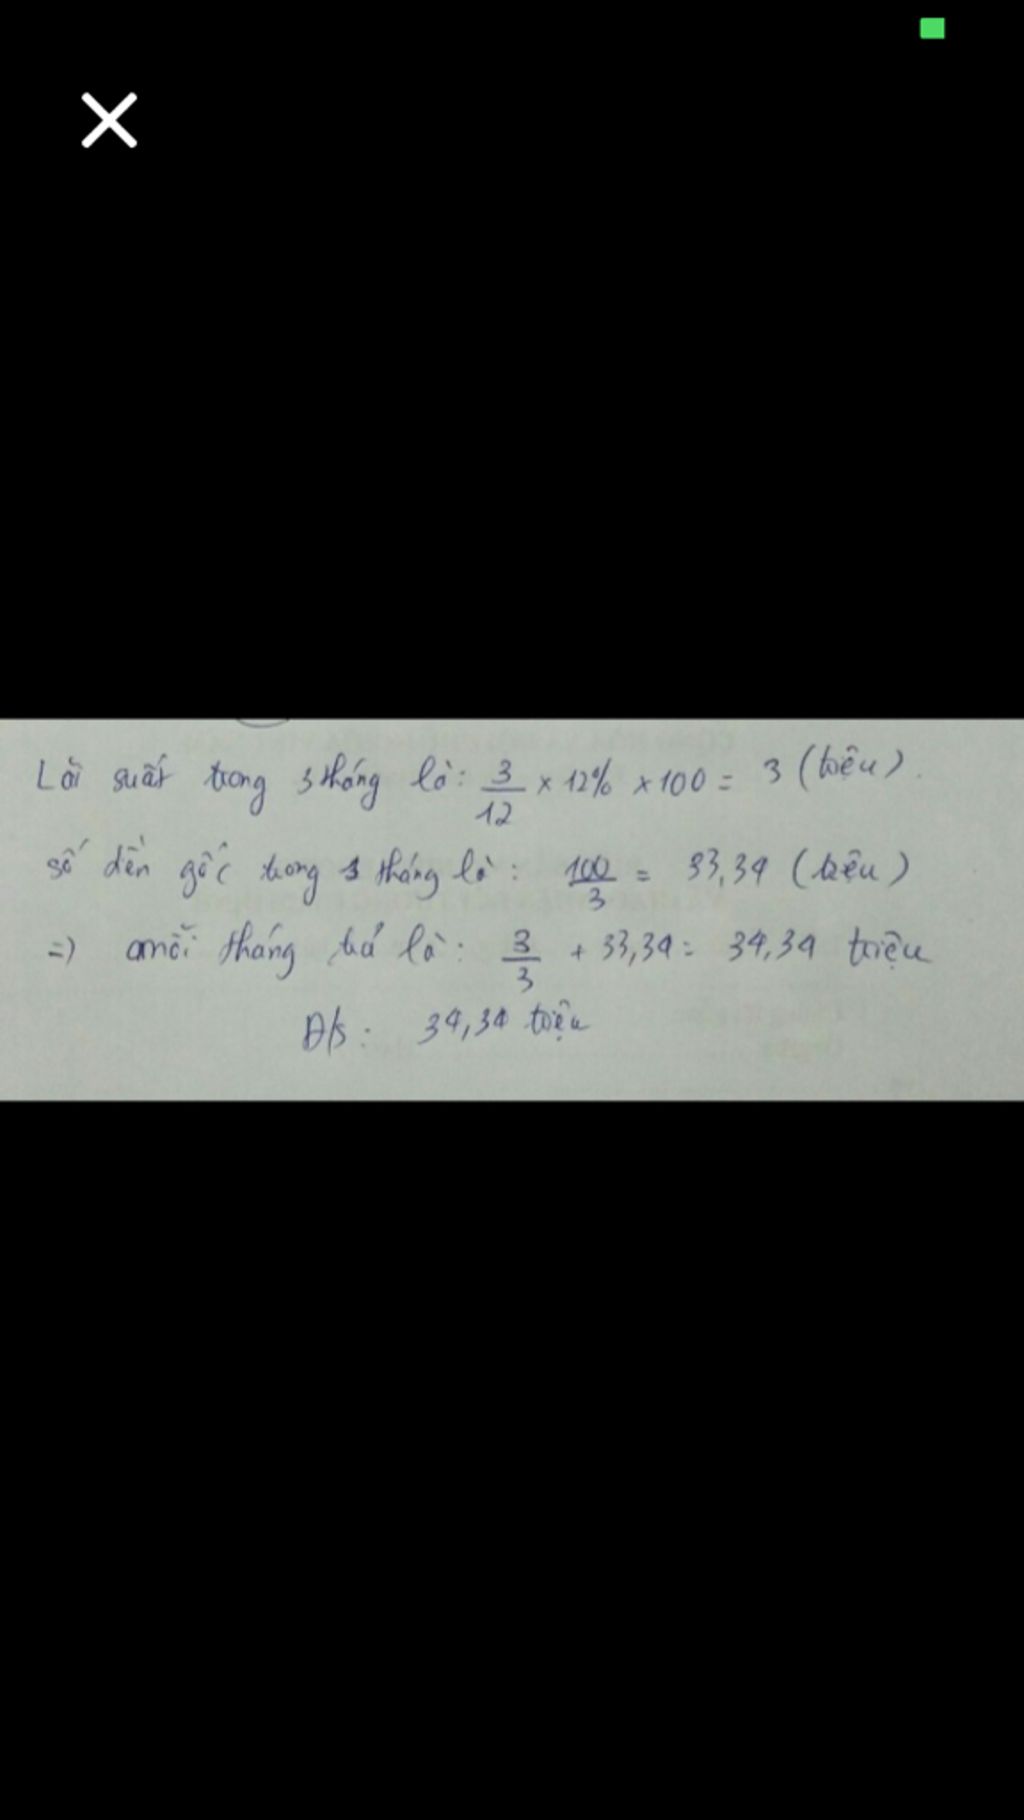 Lãi suất trong 3 tháng là: 3/12 x 12% x 100 = 3 (triệu).
số tiền gốc trong 1 tháng là: 100/3 = 33,34 (triệu)
=) mỗi tháng trả là: 3/3 + 33,34 = 34,34 triệu
Đ/s: 34,34 triệu